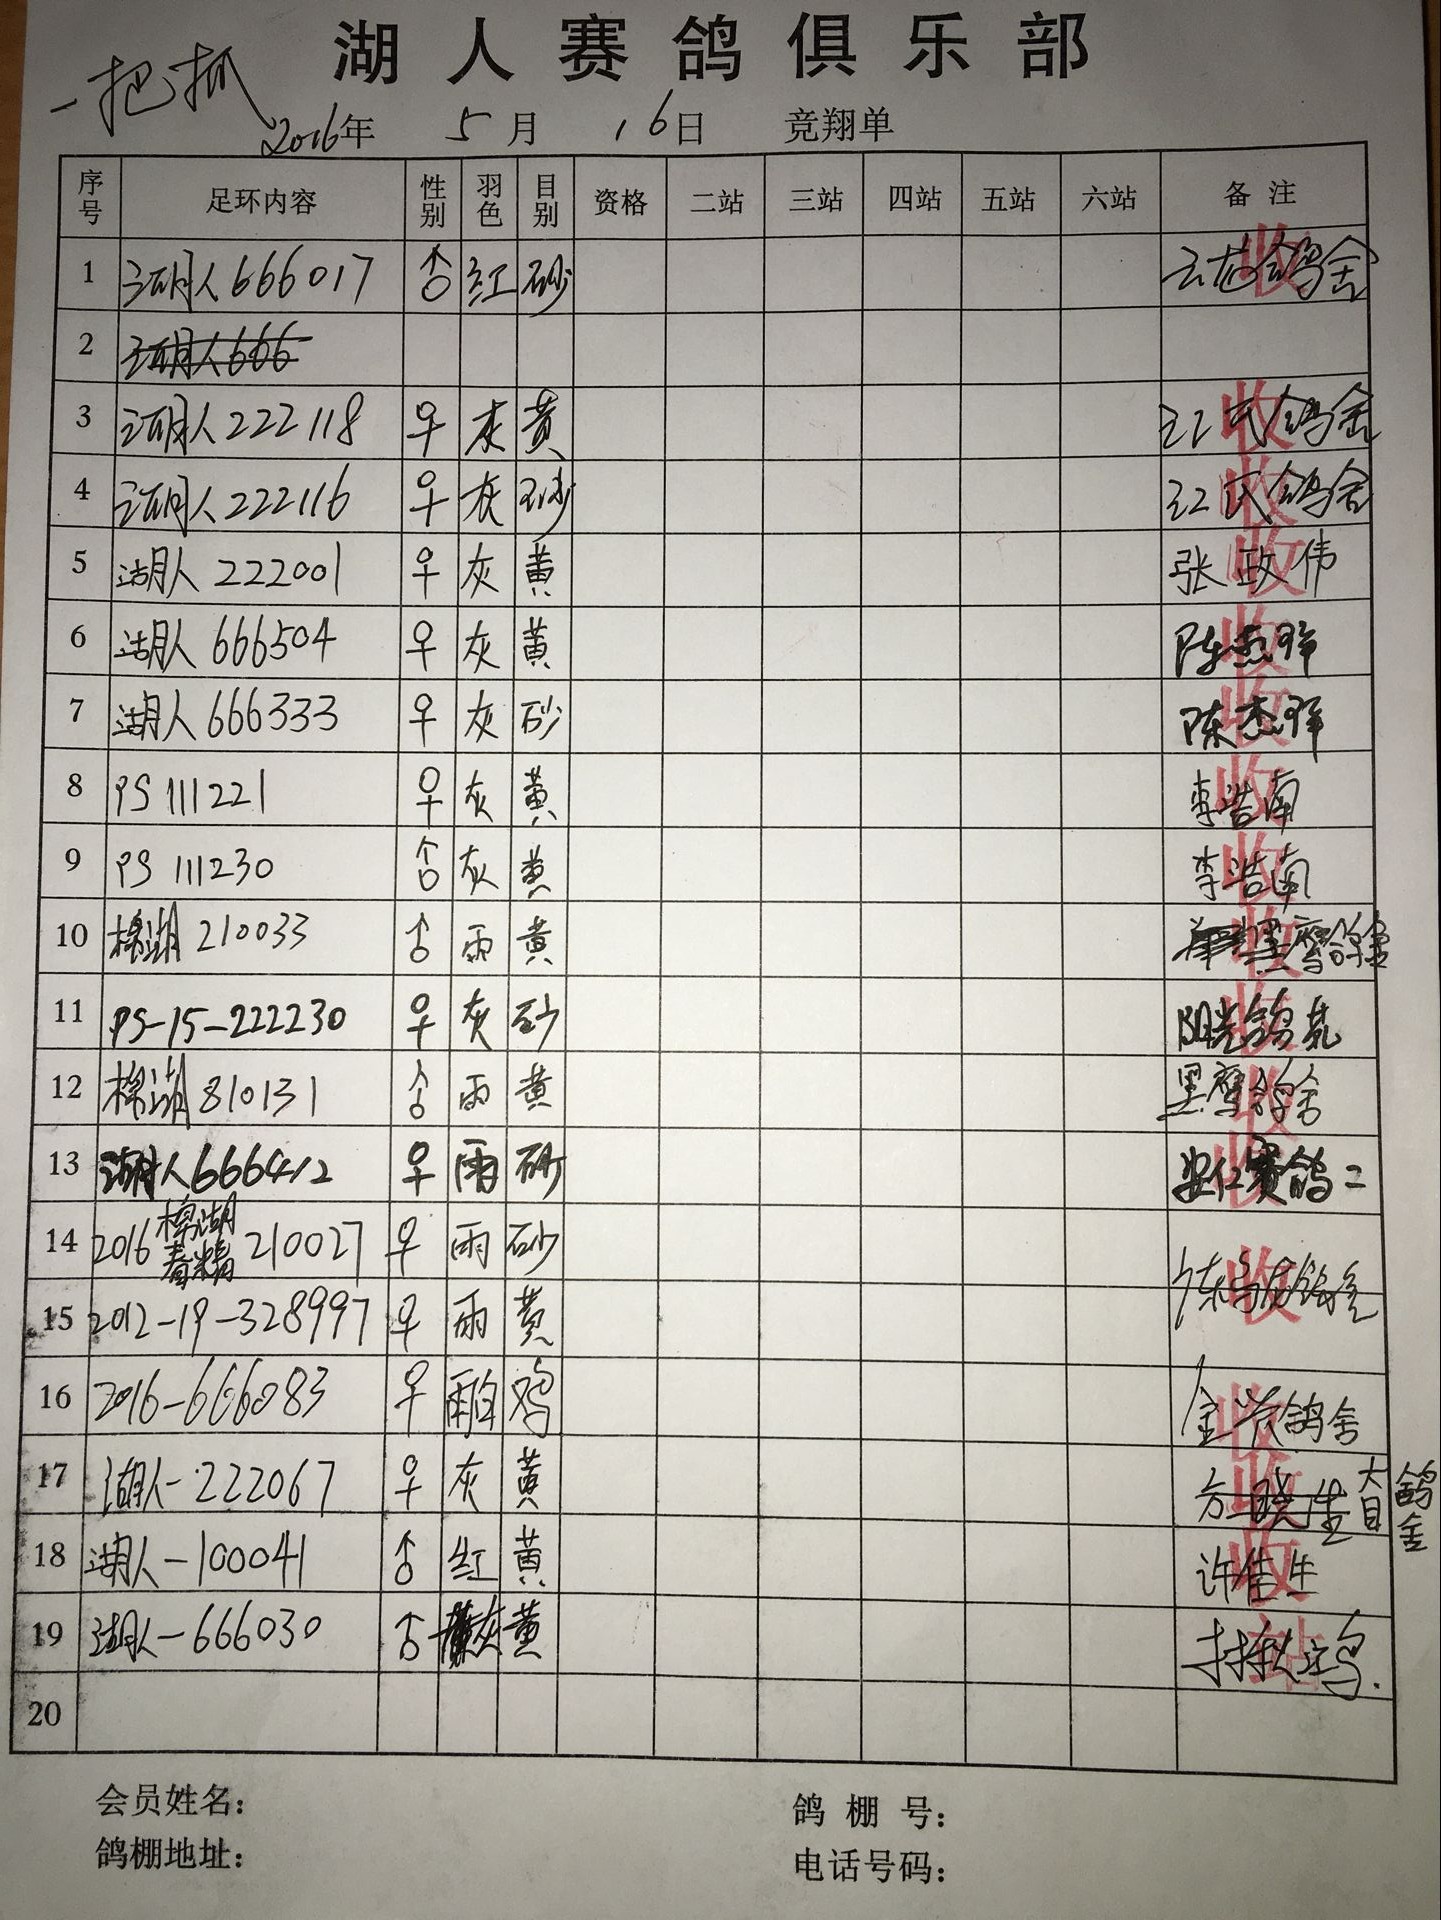 湖人赛鸽俱乐部
一把抓
2016年 5月 16日 竞翔单
序号 足环内容 性别 羽色 目别 资格 二站 三站 四站 五站 六站 备注
1 湖人666017 ♂ 红 砂 鸽舍 收
2 湖人666
3 湖人222118 ♀ 灰 黄 江氏鸽舍 收
4 湖人222116 ♀ 灰 砂 江氏鸽舍 收
5 湖人 222001 ♀ 灰 黄 张政伟 收
6 湖人 666504 ♀ 灰 黄 陈杰群 收
7 湖人 666333 ♀ 灰 砂 陈杰群 收
8 PS 111221 ♀ 灰 黄 李浩南 收
9 PS 111230 ♂ 灰 黄 李浩南 收
10 棉湖 210033 ♂ 雨 黄 黑鹰鸽舍 收
11 PS-15-222230 ♀ 灰 砂 阳光鸽苑 收
12 棉湖 810131 ♂ 雨 黄 黑鹰鸽舍 收
13 湖人666412 ♀ 雨 砂 安仁赛鸽二 收
14 2016 棉湖春棉 210027 ♀ 雨 砂 收
15 2012-19-328997 ♀ 雨 黄
16 2016-666083 ♀ 雨白 鸡 鸽舍 收
17 湖人-222067 ♀ 灰 黄 方晓生 大目鸽舍 收
18 湖人-100041 ♂ 红 黄 许佳生 收
19 湖人-666030 ♂ 灰 黄 站
20
会员姓名： 鸽棚号：
鸽棚地址： 电话号码：